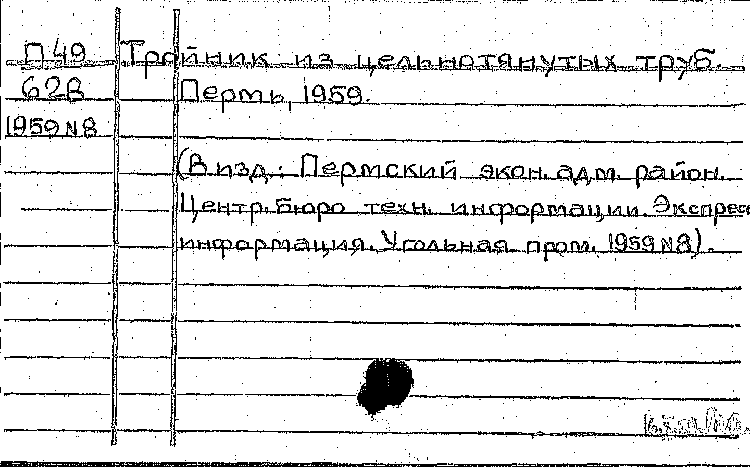 П 49 Тройник из цельнотянутых труб.
628 Пермь, 1959.
1959 N8
(В изд.: Пермский экон. адм. район.
Центр. Бюро техн. информации. Экспресс
информация. Угольная пром. 1959 N8).